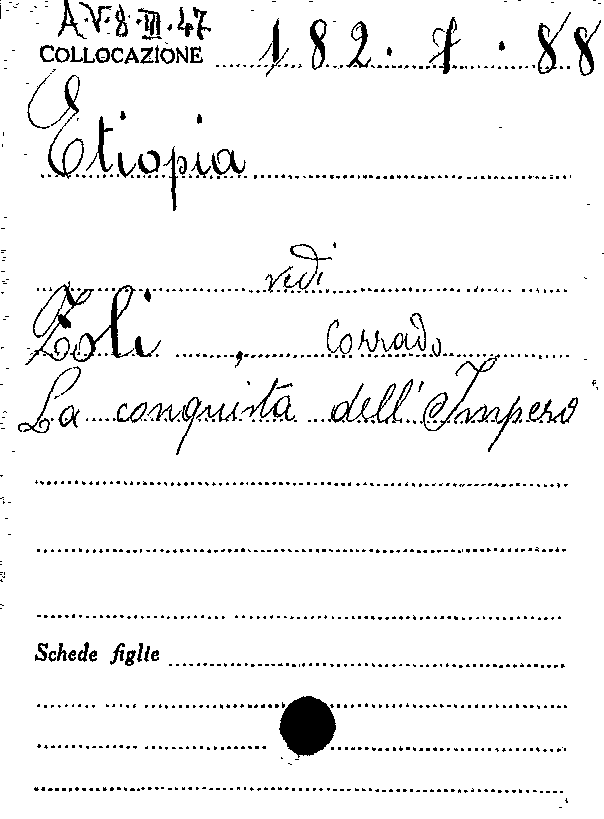 A.V.8.VII.47
COLLOCAZIONE 182.7.88
Etiopia
vedi
Zoli, Corrado
La conquista dell'Impero
Schede figlie